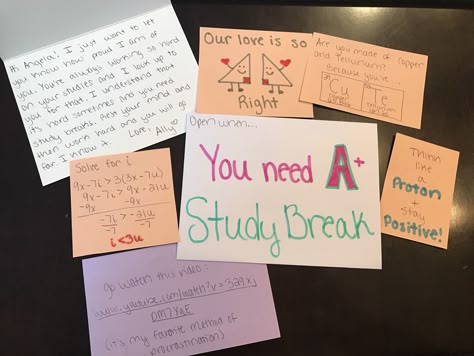 Hi Angela! I just want to let
you know how proud I am of
you. You're always working so hard
on your studies and I look up to
you for that. I understand that
it's hard sometimes and you need
study breaks. Rest your mind and
then work hard and you will go
far. I know it.
Love, Ally ♡
Our love is so
Right
Are you made of Copper
and Tellurium?
Because you're...
Cu
Te
Copper
Tellurium
Solve for i
9x-7i>3(3x-7u)
9x-7i>9x-21u
-9x -9x
-7i > -21u
-7 -7
i<3u
Open when...
You need A+
Study Break
Think
like
a
Proton
+ stay
Positive!
go watch this video:
(it's my favorite method of
procrastination)